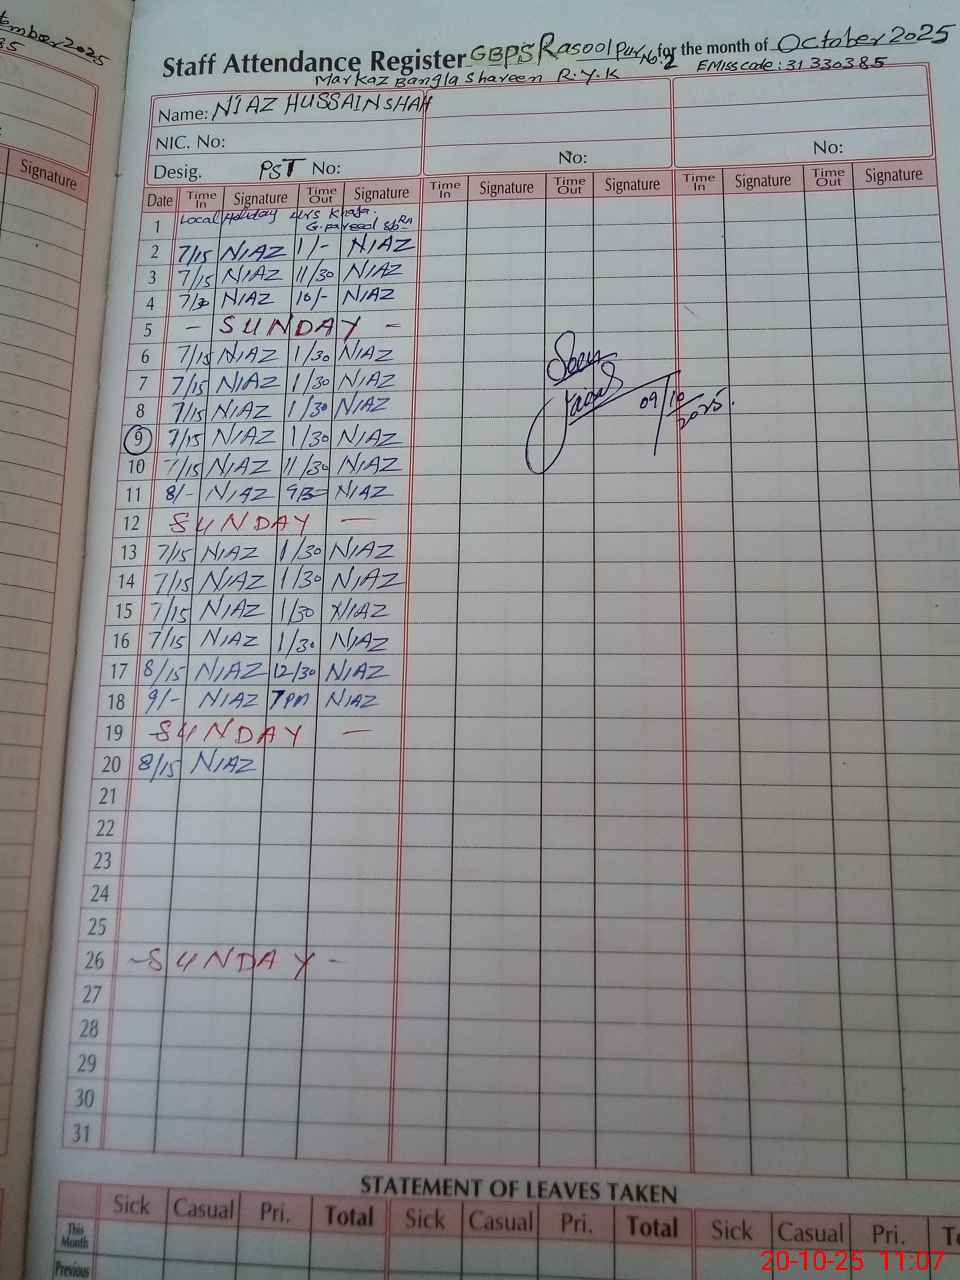 tember 2025
Signature
Staff Attendance Register GBPS Rasool Pur No. 2 for the month of October 2025
Markaz Bangla Shareen R.Y.K EMIS code: 31330385
Name: NIAZ HUSSAIN SHAH
NIC. No:
Desig. PST No: No: No:
Date Time In Signature Time Out Signature Time In Signature Time Out Signature Time In Signature Time Out Signature
1 Local Holiday
2 7/15 NIAZ 1/- NIAZ
3 7/15 NIAZ 11/30 NIAZ
4 7/30 NIAZ 10/- NIAZ
5 - SUNDAY -
6 7/15 NIAZ 1/30 NIAZ
7 7/15 NIAZ 1/30 NIAZ
8 7/15 NIAZ 1/30 NIAZ
9 7/15 NIAZ 1/30 NIAZ
10 7/15 NIAZ 11/30 NIAZ
11 8/- NIAZ NIAZ
12 SUNDAY —
13 7/15 NIAZ 1/30 NIAZ
14 7/15 NIAZ 1/30 NIAZ
15 7/15 NIAZ 1/30 NIAZ
16 7/15 NIAZ 1/30 NIAZ
17 8/15 NIAZ 12/30 NIAZ
18 9/- NIAZ 7PM NIAZ
19 SUNDAY —
20 8/15 NIAZ
21
22
23
24
25
26 - SUNDAY -
27
28
29
30
31
Seen
09/10/2025.
STATEMENT OF LEAVES TAKEN
Sick Casual Pri. Total Sick Casual Pri. Total Sick Casual Pri.
This Month
Previous
20-10-25 11:07